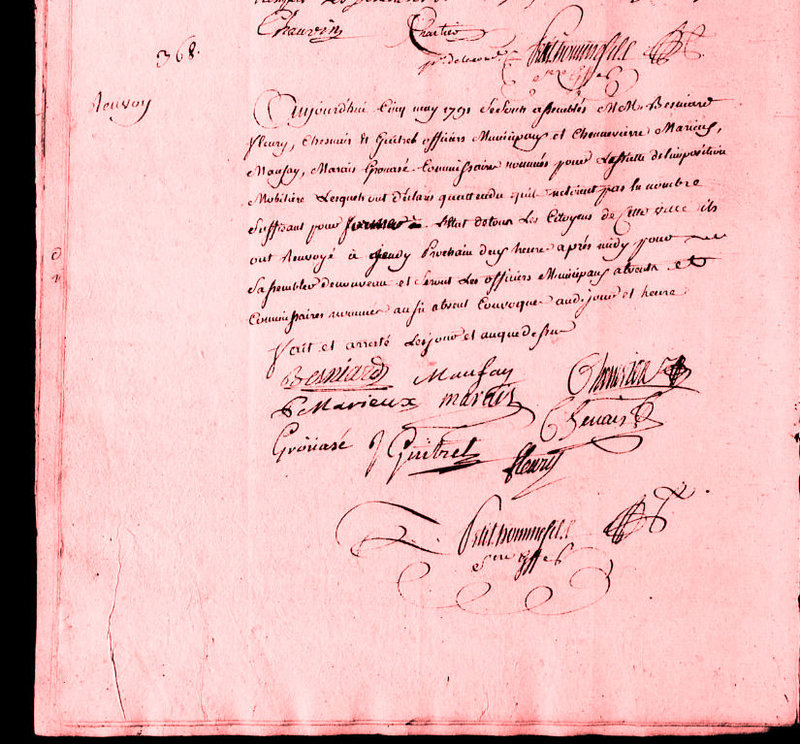 Chauvin Chartier
Petithommefils
Sre Greffe
368.
Renvoy
Aujourdhui Cinq may 1791 Se Sont assemblés M.M. Besniard
fleury, Chesnais & Guitrel officiers Municipaux et Chenneviere Marieux,
Maufay, Marais Grouasé Commissaire nommés pour Lassiette delimposition
Mobiliere Lesquels ont déclaré quattendu quil netoient pas la nombre
Suffisant pour former Letat detous Les Citoyens de Cette ville ils
ont Renvoyé à jeudy Prochain deux heure après midy pour
Sassembler denouveau et Seront Les officiers Municipaux absents et
Commissaires nommés aussi absent Convoqués aud. jour et heure
Fait et arresté Lesjour et anquedessus
Besniard Maufay
P Marieux marais
Grouasé J Guitrel fleury
Petithommefils
Sre Greffe